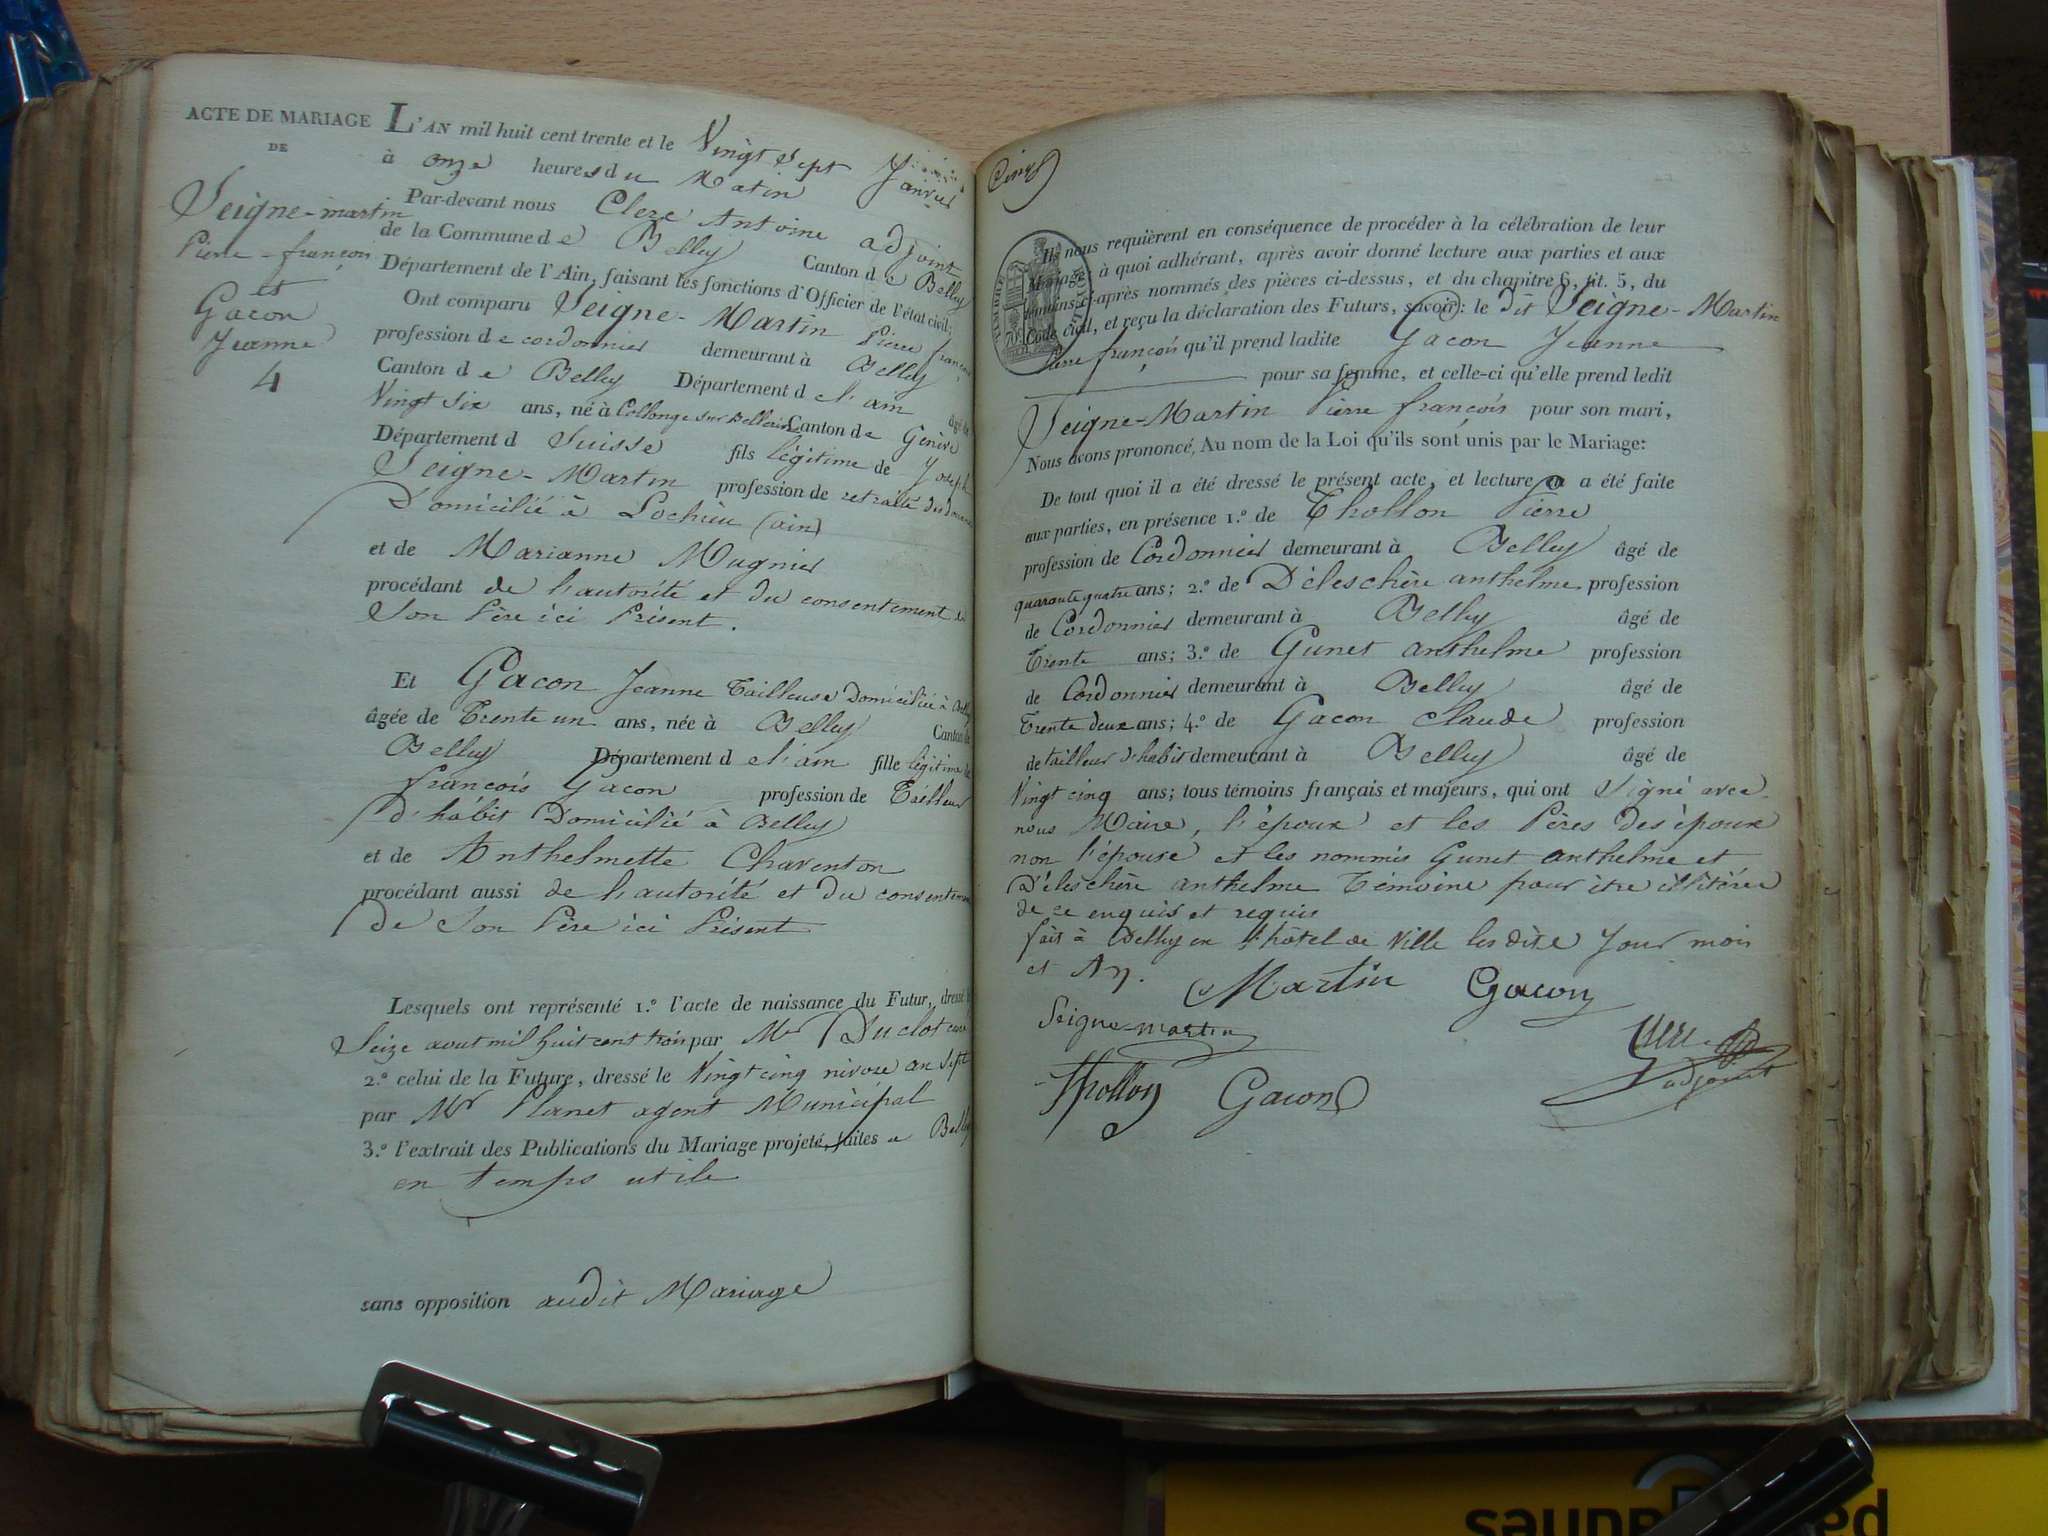 ACTE DE MARIAGE
DE
Seigne-martin
Pierre-françois
et
Gacon
Jeanne
4
L'AN mil huit cent trente et le Vingt Sept Janvier
à onze heures du Matin
Par-devant nous Clerc Antoine adjoint
de la Commune de Belley Canton de Belley
Département de l'Ain, faisant les fonctions d'Officier de l'état civil;
Ont comparu Seigne-Martin Pierre françois
profession de cordonnier demeurant à Belley
Canton de Belley Département d l'ain âgé de
Vingt six ans, né à Collonge sur Bellerive Canton de Genève
Département d Suisse fils légitime de Joseph
Seigne-Martin profession de retraité des douanes
Domicilié à Lochieu (ain)
et de Marianne Mugnier
procédant de l'autorité et du consentement de
Son Père ici Présent.
Et Gacon Jeanne Tailleuse Domiciliée à Belley
âgée de Trente un ans, née à Belley Canton de
Belley Département d l'ain fille légitime de
françois Gacon profession de Tailleur
d'habit Domicilié à Belley
et de Anthelmette Charenton
procédant aussi de l'autorité et du consentement
de Son Père ici Présent
Lesquels ont représenté 1.º l'acte de naissance du Futur, dressé le
Seize aout mil huit cent trois par Mr Duclot curé
2.º celui de la Future, dressé le Vingt cinq nivose an Sept
par Mr Planet agent Municipal
3.º l'extrait des Publications du Mariage projeté, faites a Belley
en temps utile
sans opposition audit Mariage
Cinq
TIMBRE
70
Ils nous requièrent en conséquence de procéder à la célébration de leur
Mariage; à quoi adhérant, après avoir donné lecture aux parties et aux
témoins ci-après nommés des pièces ci-dessus, et du chapitre 6, tit. 5, du
Code civil, et reçu la déclaration des Futurs, savoir: le dit Seigne-Martin
Pierre françois qu'il prend ladite Gacon Jeanne
pour sa femme, et celle-ci qu'elle prend ledit
Seigne-Martin Pierre françois pour son mari,
Nous avons prononcé, Au nom de la Loi qu'ils sont unis par le Mariage:
De tout quoi il a été dressé le présent acte, et lecture en a été faite
aux parties, en présence 1.º de Thollon Pierre
profession de Cordonnier demeurant à Belley âgé de
quarante quatre ans; 2.º de Déleschère anthelme profession
de Cordonnier demeurant à Belley âgé de
Trente ans; 3.º de Gunet anthelme profession
de Cordonnier demeurant à Belley âgé de
Trente deux ans; 4.º de Gacon Claude profession
de tailleur d'habit demeurant à Belley âgé de
Vingt cinq ans; tous témoins français et majeurs, qui ont Signé avec
nous Maire, l'époux et les Pères des époux
non l'épouse et les nommés Gunet anthelme et
Déleschère anthelme Témoins pour être illitérés
de ce enquis et requis
fait à Belley en l'hôtel de Ville les dits Jour mois
et An.
Martin Gacon
Seigne-martin
Clerc
adjoint
Thollon Gacon